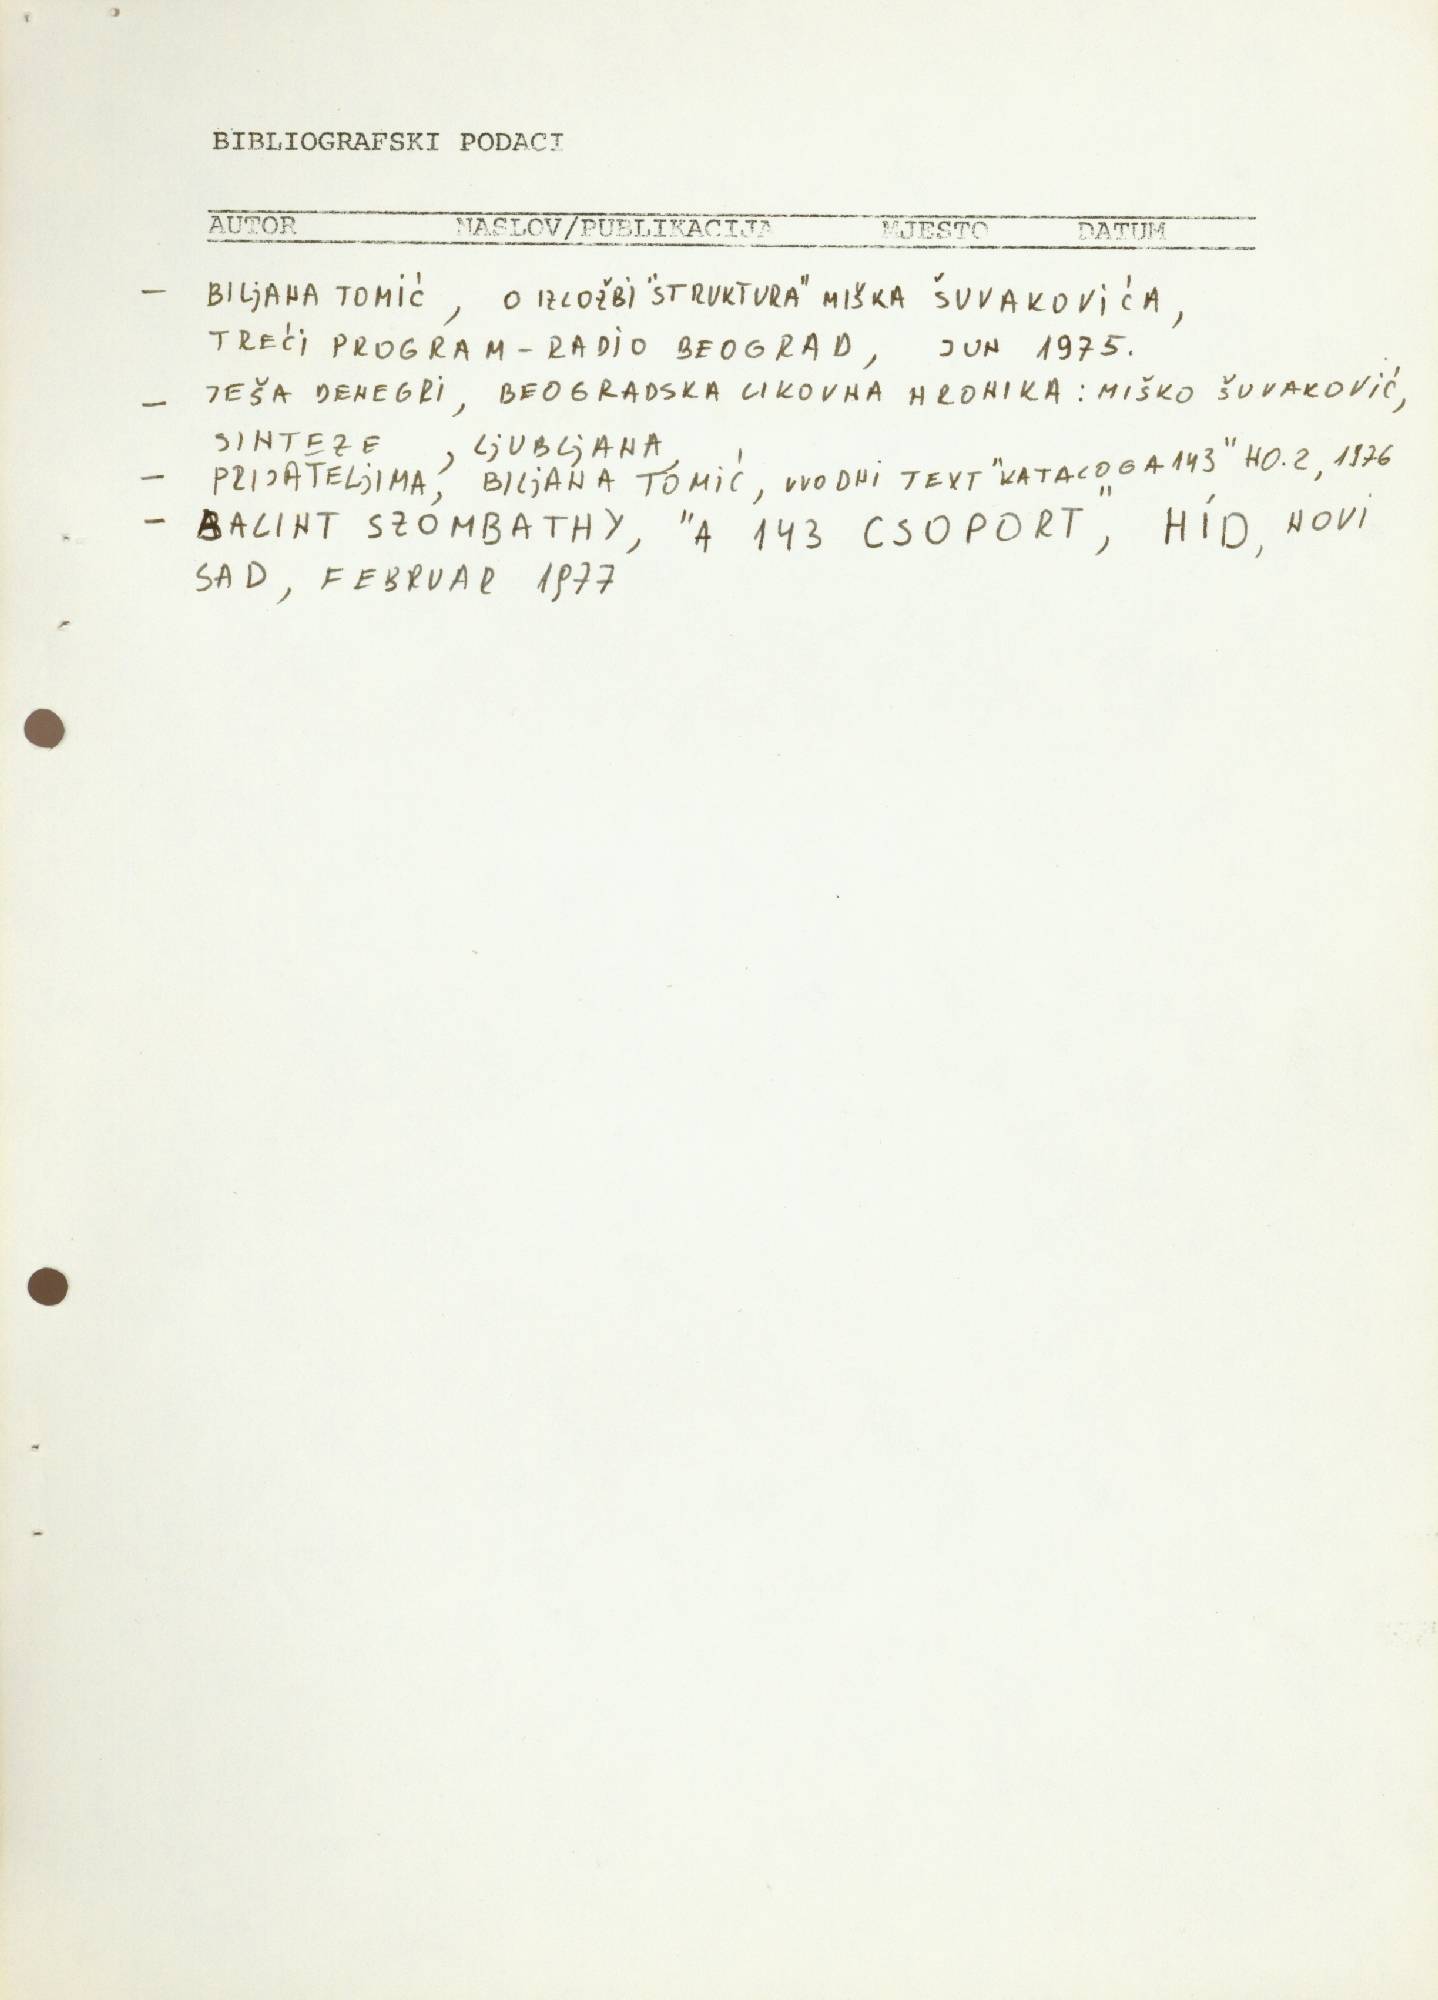 BIBLIOGRAFSKI PODACI
AUTOR NASLOV/PUBLIKACIJA MJESTO DATUM
— BILJANA TOMIĆ, O IZLOŽBI "STRUKTURA" MIŠKA ŠUVAKOVIĆA,
TREĆI PROGRAM - RADIO BEOGRAD, JUN 1975.
— JEŠA DENEGRI, BEOGRADSKA LIKOVNA HRONIKA: MIŠKO ŠUVAKOVIĆ,
SINTEZE , LJUBLJANA,
— PRIJATELJIMA, BILJANA TOMIĆ, UVODNI TEXT "KATALOGA 143" NO. 2, 1976
— BALINT SZOMBATHY, "A 143 CSOPORT", HÍD, NOVI
SAD, FEBRUAR 1977